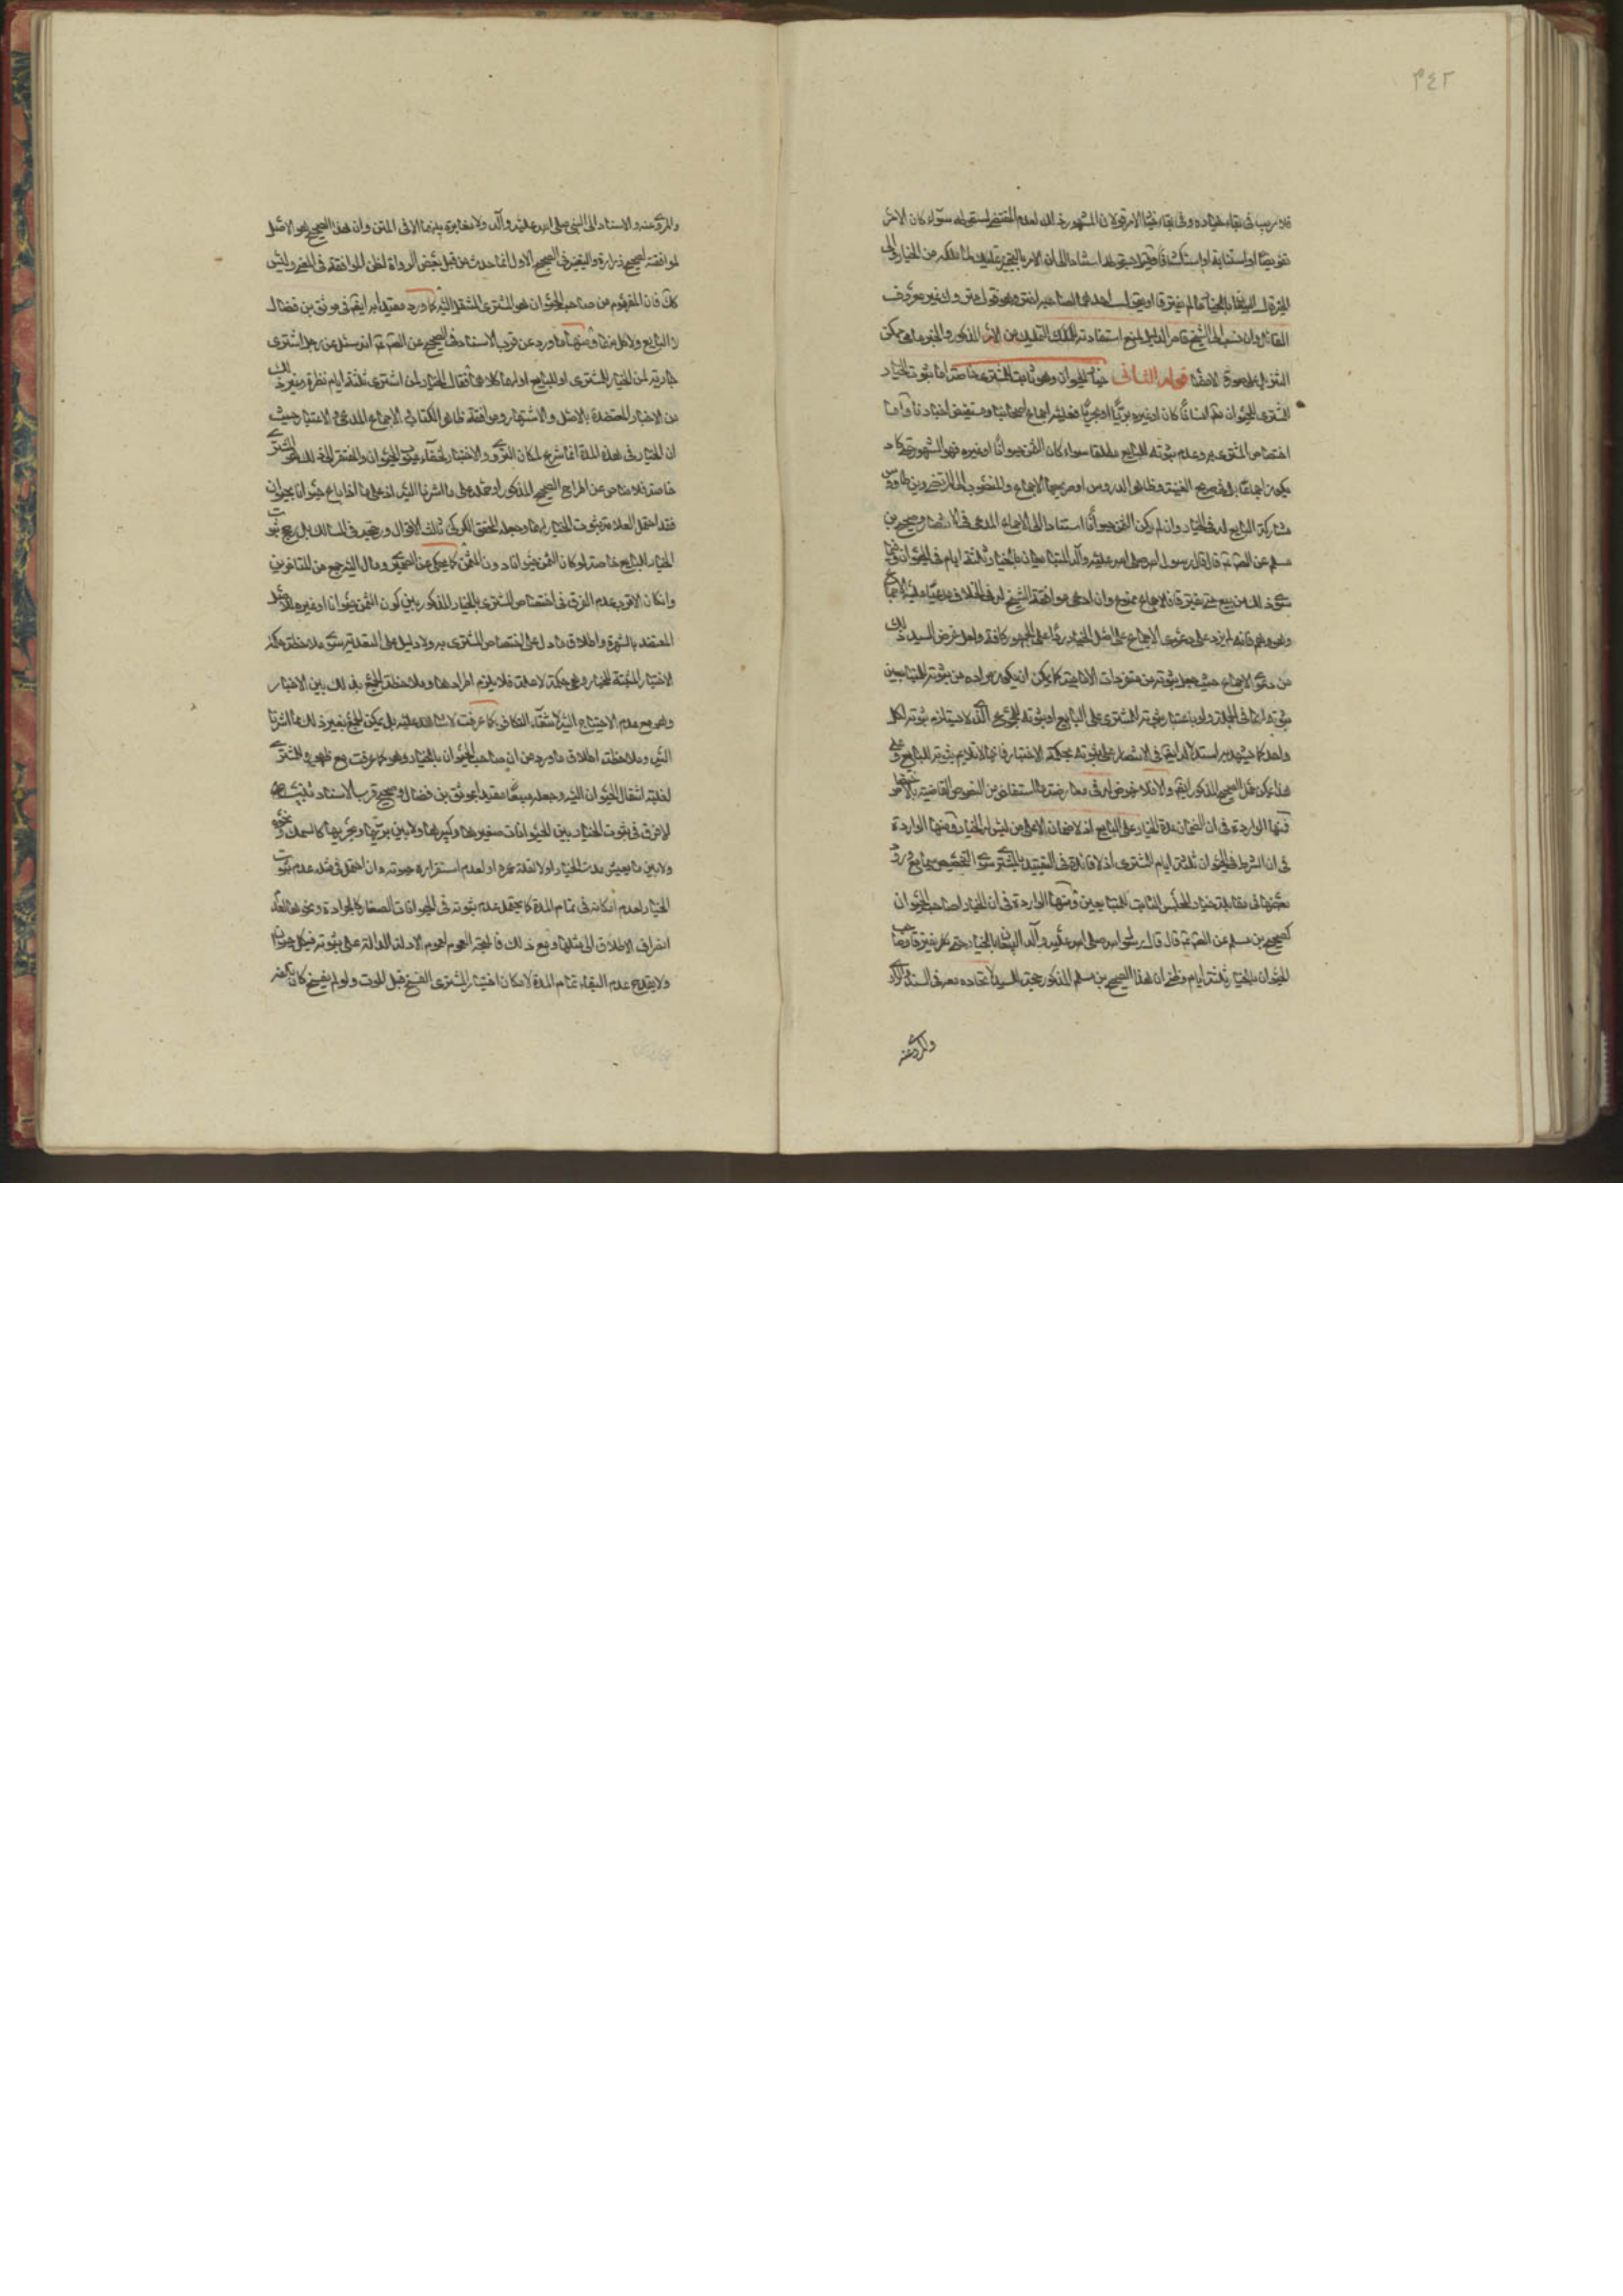 ٣٤٢
فلا ريب في بقاء خياره وفي بقاء خيار الامر قولان المشهور ذلك لعدم المقتضي لسقوطه سواء كان الامر
تفويضا او استنابة او استكشافا وقيل
البيعان بالخيار ما لم يفترقا او يقول احدهما لصاحبه اختر وهو قول متروك غير معروف
القائل وان نسب الى الشيخ قاصر الدليل لمنع استفادة تمليك التمليك من الامر المذكور والخبر عامي يمكن
التنزيل على صورة الامضاء قوله الثاني خيار الحيوان وهو ثابت للمشتري خاصة اما ثبوت الخيار
للمشتري للحيوان انسانا كان او غيره بريا او بحريا فعليه اجماع اصحابنا ومستفيض اخبارنا واما
اختصاص المشتري به وعدم ثبوته للبايع مطلقا سواء كان الثمن حيوانا او غيره فهو المشهور حتى كاد
يكون اجماعا بل في صريح الغنية وظاهر الدروس او صريحها الاجماع والمنسوب الى المرتضى وبن طاوس
مشاركة البايع له في الخيار وان لم يكن الثمن حيوانا استنادا الى الاجماع المدعى في الانتصار وصحيح بن
مسلم عن الصادق ع قال قال رسول الله صلى الله عليه وآله المتبايعان بالخيار ثلثة ايام في الحيوان وفيما
سوى ذلك من بيع حتى يفترقا فان الاجماع ممنوع وان ادعى موافقة الشيخ له في الخلاف مدعيا عليه الاجماع
وهو وهم فانه لم يزد على دعوى الاجماع على اصل الخيار ردا على الجمهور كافة ولعل غرض السيد ذلك
من دعوى الاجماع حيث جعل ثبوته من متفردات الامامية كما يمكن ان يكون مراده من ثبوته للمتبايعين
ثبوته لهما في الجملة ولو باعتبار ثبوته للمشتري على البايع او ثبوته للمجموع الذي لا يستلزم ثبوته لكل
واحد كما يشهد به استدلاله ايضا في الانتصار على ثبوته بحكمة الاختبار فانها لا تلائم ثبوته للبايع وعلى
هذا يمكن حمل الصحيح المذكور ايضا والا فلا نهوض له في معارضة ما استفاض من النصوص القاضية بالاختصاص
فمنها الواردة في ان الضمان مدة الخيار على البايع اذ لا ضمان الا على من ليس له الخيار ومنها الواردة
في ان الشرط في الحيوان ثلثة ايام للمشتري اذ لا فائدة في التقييد بالمشتري سوى التخصيص سيما مع ورود
بعضها في مقابلة خيار المجلس الثابت للمتبايعين ومنها الواردة في ان الخيار لصاحب الحيوان
كصحيح بن مسلم عن الصادق ع قال قال رسول الله صلى الله عليه وآله البيعان بالخيار حتى يفترقا وصاحب
الحيوان بالخيار ثلثة ايام وظني ان هذا الصحيح بن مسلم المذكور حجة للسيد لاتحاده معه في السند والراوي
والمروي عنه
والمروي عنه والاسناد الى النبي صلى الله عليه وآله ولا مغايرة بينهما الا في المتن وان هذا الصحيح هو الاصل
لموافقته لصحيح زرارة والتغيير في الصحيح الاول انما حدث من قبل بعض الرواة لظن الموافقة في المعنى وليس
كك فان المفهوم من صاحب الحيوان هو المشتري المنتقل اليه كما ورد مقيدا به ايضا في موثق بن فضال
لا البايع ولا كل منهما ومنها ما ورد عن قرب الاسناد في الصحيح عن الصادق ع انه سئل عن رجل اشترى
جارية لمن الخيار للمشتري او للبايع او لهما كلاهما فقال الخيار لمن اشترى ثلثة ايام نظرة وغير ذلك
من الاخبار المعتضدة بالاصل والاشتهار وموافقة ظاهر الكتاب والاجماع المدعى والاعتبار حيث
ان الخيار في هذه المدة انما شرع لمكان التروي والاختبار لخفاء عيوب الحيوان والمفتقر الى ذلك هو المشتري
خاصة فلا مناص عن اطراح الصحيح المذكور او حمله على ما اشرنا اليه او على ما اذا باع حيوانا بحيوان
فقد احتمل العلامة ثبوت الخيار لهما وجعله المحقق الكركي ثالث الاقوال ورجحه في المسالك بل ربما ثبوت
الخيار للبايع خاصة لو كان الثمن حيوانا دون المثمن كما يحكى عن الصيمري ومال اليه جمع من المتاخرين
وان كان الاقرب عدم الفرق في اختصاص المشتري بالخيار المذكور بين كون الثمن حيوانا او غيره للاصل
المعتضد بالشهرة واطلاق ما دل على اختصاص المشتري به ولا دليل على التعدية سوى ملاحظة حكمة
الاختبار المثبتة للخيار وهي حكمة لا علة فلا يلزم اطرادها وملاحظة الجمع بذلك بين الاخبار
وهو مع عدم الاحتياج اليه لانتفاء التكافي كما عرفت لا شاهد عليه بل يمكن الجمع بغير ذلك مما اشرنا
اليه وملاحظة اطلاق ما ورد من ان صاحب الحيوان بالخيار وهو كما عرفت مع ظهوره في المشتري
لغلبة انتقال الحيوان اليه وجعله مبيعا مقيد بموثق بن فضال وصحيح قرب الاسناد تنبيه
لا فرق في ثبوت الخيار بين الحيوانات صغيرها وكبيرها ولا بين بريها وبحريها كالسمك ونحوه
ولا بين ما يعيش مدة الخيار او لا لقلة عمره او لعدم استقرار حيوته وان احتمل في مثله عدم ثبوت
الخيار لعدم امكانه في تمام المدة كما يحتمل عدم ثبوته في الحيوانات الصغار كالجرادة ونحوها لعدم
انصراف الاطلاق الى مثلها ومع ذلك فالمتجه العموم لعموم الادلة الدالة على ثبوته في كل حيوان
ولا يقدح عدم البقاء تمام المدة لامكان اختيار المشتري الفسخ قبل الموت ولو لم يفسخ كان